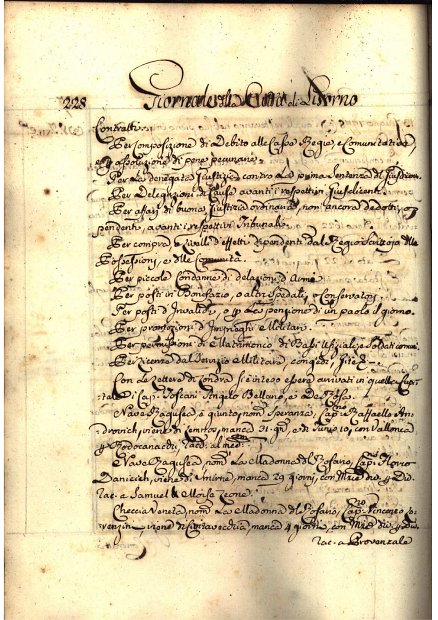 228
Giornale della Città di Livorno
Contratti.
Per composizione di Debito alle Casse Regie, e Comunitative,
assoluzione di pene pecuniarie.
Per La denegata Giustizia contro La prima Sentenza
Per Delegazioni di Cause avanti i respettivi
Per affari di buona Giustizia ordinaria, non ancora dedotti, o
pendenti avanti i respettivi Tribunali.
Per compra, e Livelli d'effetti dipendenti dal Regio Scrittoio delle
Possessioni, e delle Comunità.
Per piccole Condanne di delazioni d'Armi
Per posti in Bonifazio, o altri Spedali, e Conservatorj
Per posti d'Invalidi, o La pensione di un paolo il giorno.
Per promozioni d'Impieghi Militari.
Per permissioni di Matrimonio di Bassi Ufiziali, e Soldati comuni
Per licenze dal Servizio Militare, congedi,
Con Le Lettere di Londra si è inteso essere arrivati in quella Capi
tale i Cap. Toscani Angelo Bellano, e De
Nave Ragusea, è giunto, nom. Speranza, Cap. Raffaello An
drovich, viene di manca 21. e di 10, con Vallonea
al med.
Nave Ragusea, nom. La Madonna del Rosario, Cap.
Danicich, viene di Smirne, manca 29 giorni, con
a Samuel & Moisè Leone.
Checcia Veneta, nom. La Madonna del Rosario, Cap. Vincenzo
viene di Civitavecchia, manca 4 giorni, con
a Provenzale